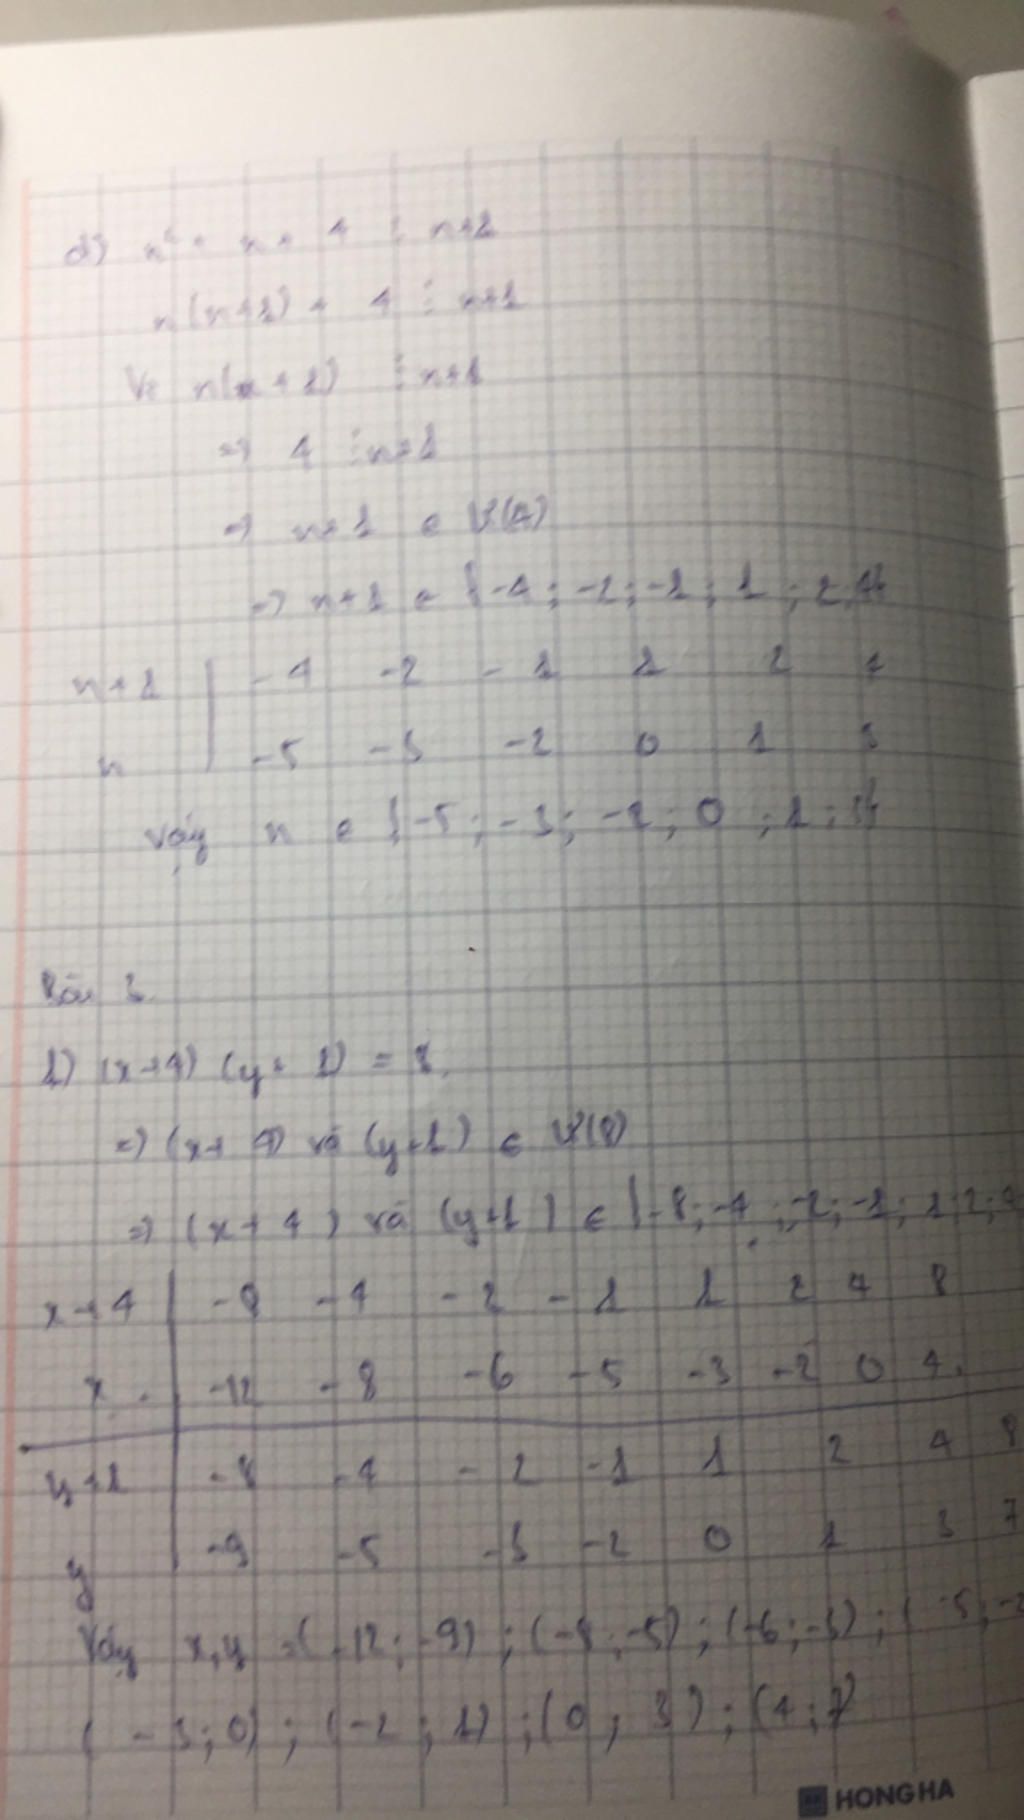 d) n² + n + 4 ⋮ n+1
n(n+1) + 4 ⋮ n+1
Vì n(n+1) ⋮ n+1
=> 4 ⋮ n+1
=> n+1 ∈ Ư(4)
=> n+1 ∈ {-4; -2; -1; 1; 2; 4}
n+1 | -4 -2 -1 1 2 4
n | -5 -3 -2 0 1 3
Vậy n ∈ {-5; -3; -2; 0; 1; 3}
Bài 3
1) (x+4) (y+1) = 8.
=> (x+4) và (y+1) ∈ Ư(8)
=> (x+4) và (y+1) ∈ {-8; -4; -2; -1; 1; 2; 4
x+4 | -8 -4 -2 -1 1 2 4 8
x | -12 -8 -6 -5 -3 -2 0 4
y+1 | -8 -4 -2 -1 1 2 4 8
y | -9 -5 -3 -2 0 1 3 7
Vậy x,y = (-12; -9); (-8; -5); (-6; -3); (-5; -2
(-3; 0); (-2; 1); (0; 3); (4; 7)
HONG HA